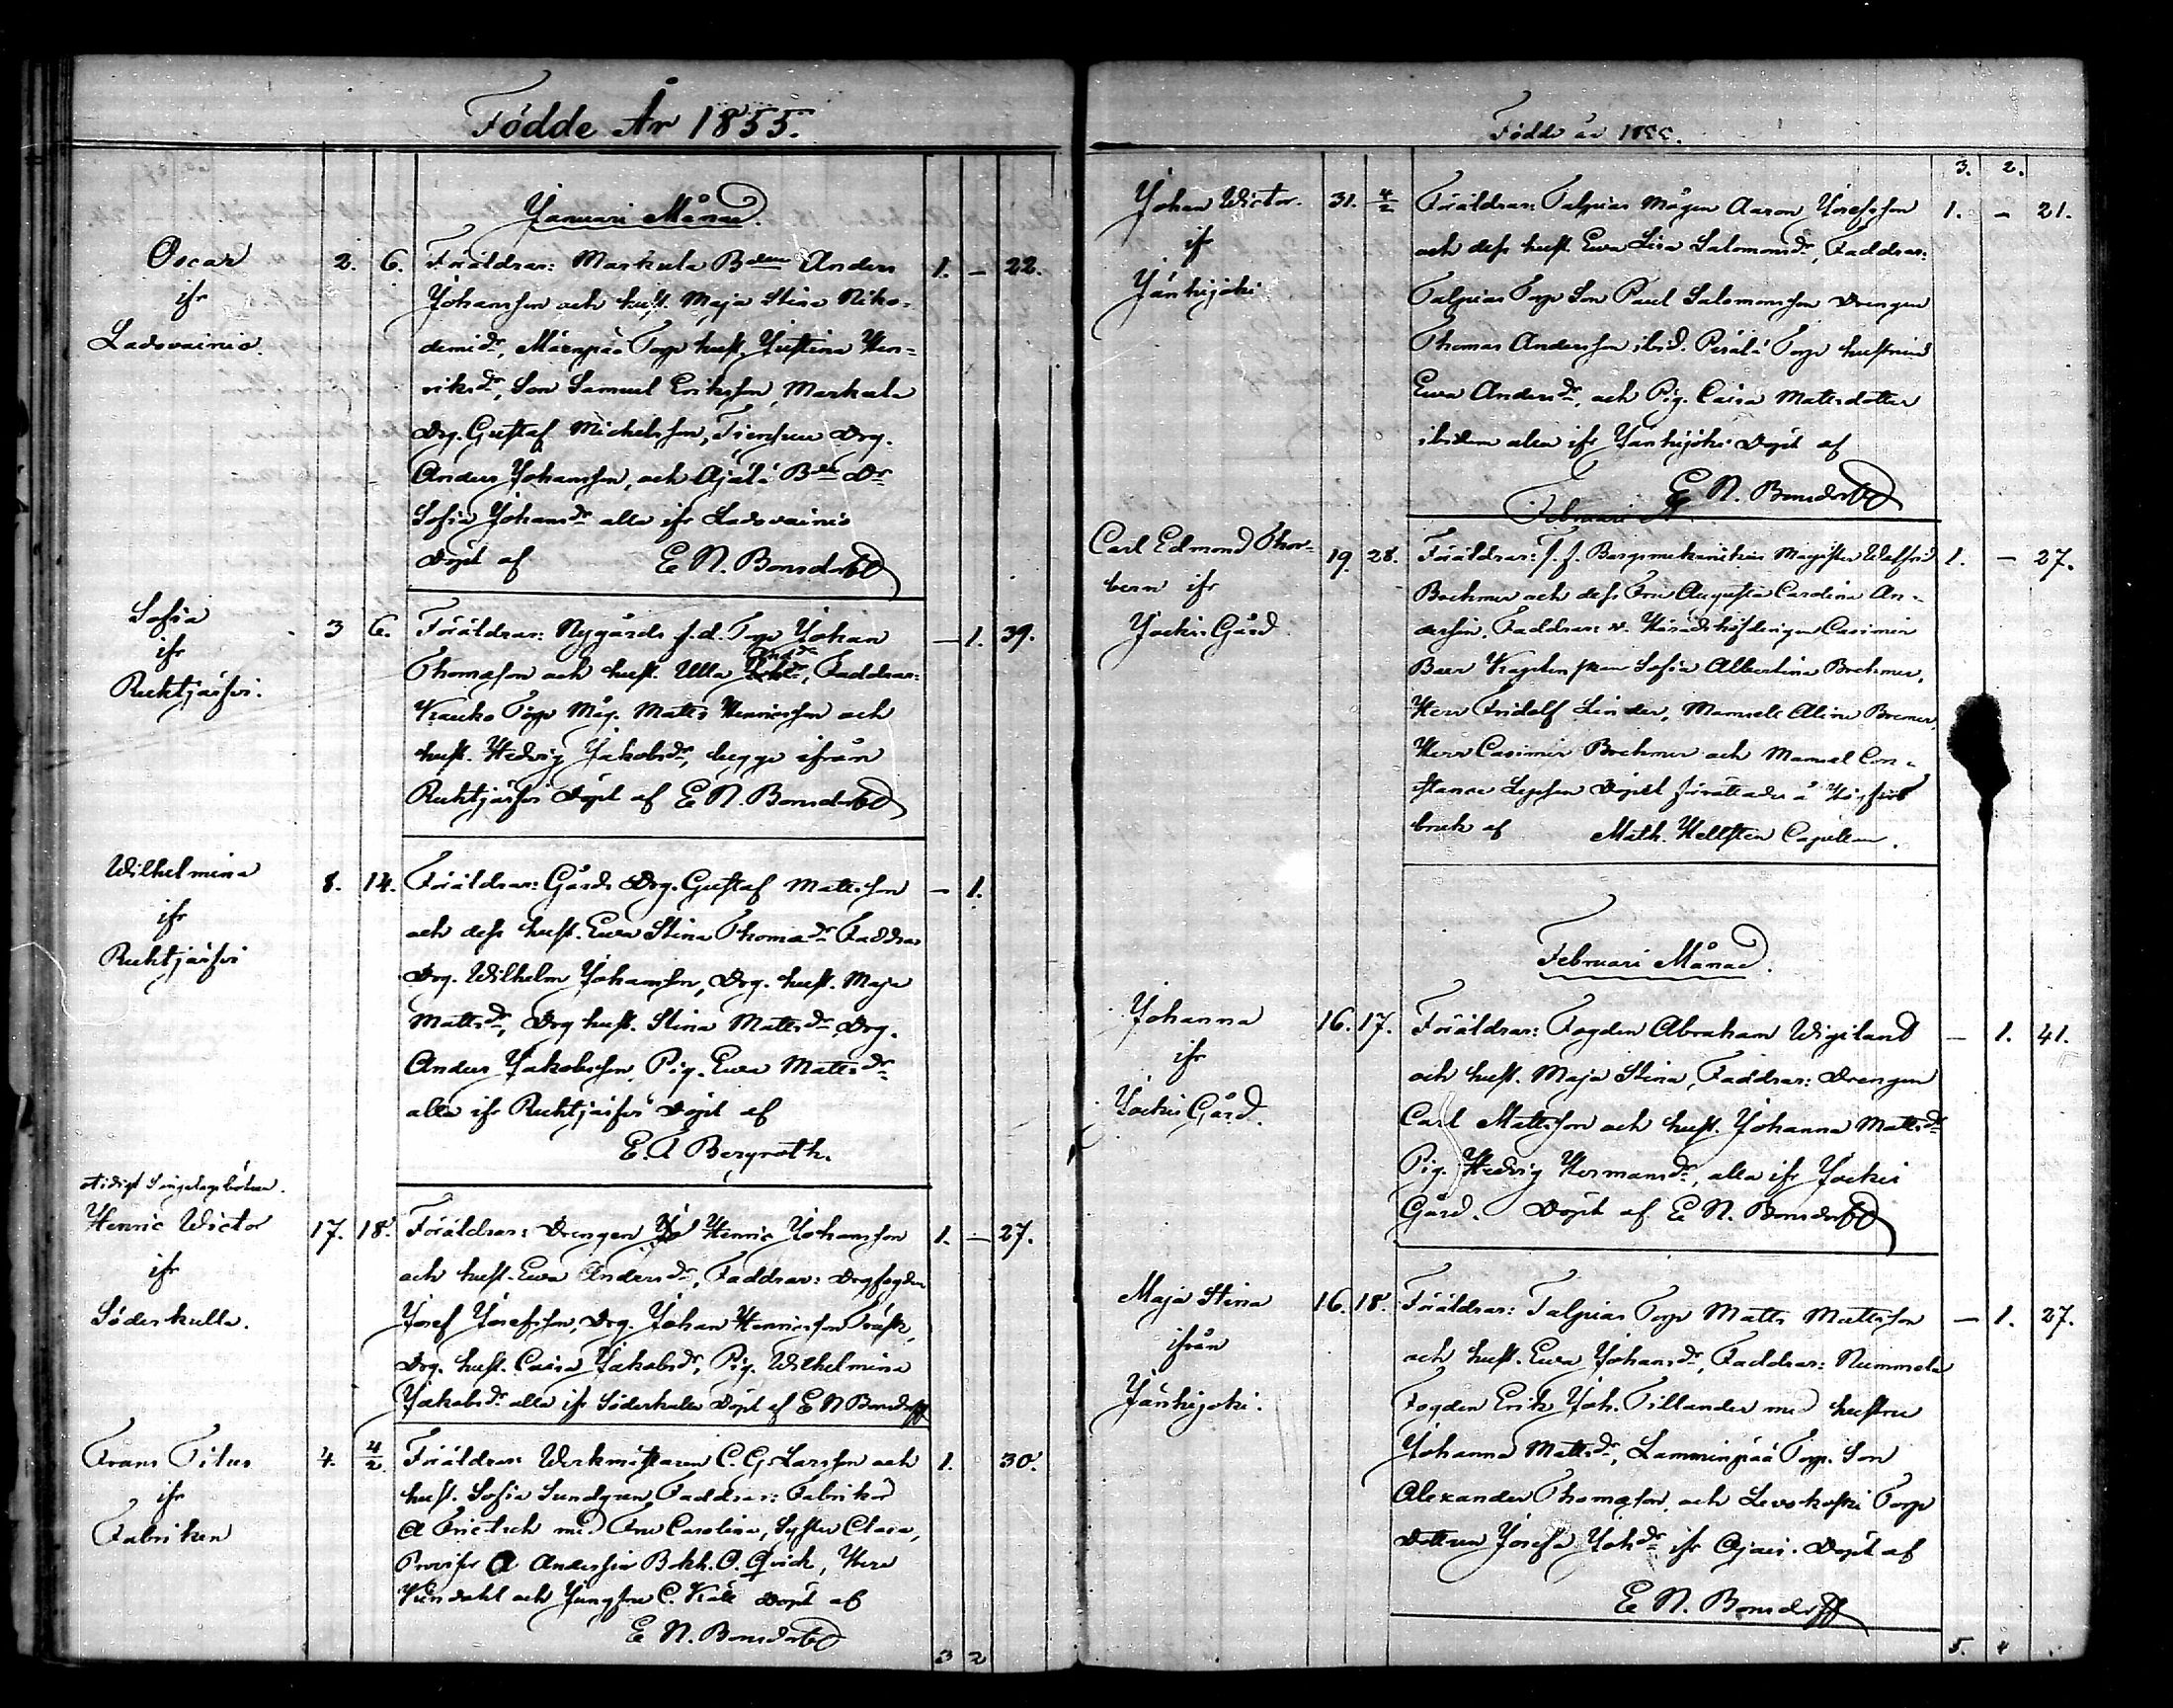 Födde År 1855.
Januari Månad.
Oscar
ifr
Ladovainio.
2. 6.
Föräldrar: Markula Bden Anders
Johansson och hust. Maja Stina Niko-
demidr, Mäenpää Torp hust. Justina Hen-
riksdr, Son Samuel Eriksson, Markula
Drg. Gustaf Michelsson, Drg.
Anders Johansson, och Ojala Bde Dr
Sofia Johansdr alla ifr Ladovainio
Döpt af E N. Bonsdorff
1. – 22.
Sofia
ifr
Ruhtjärfvi.
3 6.
Föräldrar: Nygårds f.d. Torp Johan
Thomasson och hust. Ulla Andsdr, Faddrar:
Krauko Torp Måg. Matts Henricsson och
hust. Hedvig Jakobsdr, begge ifrån
Ruhtjärfvi Döpt af E N. Bonsdorff
– 1. 39.
Wilhelmina
ifr
Ruhtjärfvi
8. 14.
Föräldrar: Gårds Drg. Gustaf Mattsson
och dess hust. Ewa Stina Thomadr Faddrar
Drg. Wilhelm Johansson, Drg. hust. Maja
Mattsdr, Drg hust. Stina Mattsdr Drg.
Anders Jakobsson, Pig. Ewa Mattsdr
alla ifr Ruhtjärfvi Döpt af
E. A Bergroth.
– 1.
Henric Wictor
ifr
Söderkulla.
17. 18.
Föräldrar: Drengen Henric Johansson
och hust. Ewa Andersdr, Faddrar: Drgfogden
Josef Josefsson, Drg. Johan Henricsson Träsk,
Drg. hust. Caisa Jakobsdr, Pig. Wilhelmina
Jakobsdr alla ifr Söderkulla Döpt af E N Bonsdorff
1. – 27.
Frans Titus
ifr
Fabriken
4. 4/2.
Föräldrar Werkmästaren C. G. Larsson och
hust. Sofia Sundgren, Faddrar: Fabrikör
A Frietsch med Fru Carolina, Syster Clara,
A Andersin Bokh. O. Qvick, Herr
och Jungfru C. Käll Döpt af
E N. Bonsdorff
1. 30.
3 2
Födde år 1855.
3. 2.
Johan Wictor.
ifr
Jänhijoki
31. 4/2
Föräldrar: Talpias Mågen Aaron Josefsson
och dess hust. Ewa Lisa Salomonsdr, Faddrar:
Talpias Torp Son Paul Salomonsson Drengen
Thomas Andersson ibid. Perälä Torp hustrun
Ewa Andersdr, och Pig. Caisa Mattsdotter
ibidem alla ifr Jänhijoki Döpt af
E N. Bonsdorff
1. – 21.
Februari
Carl Edmond Thor-
bern ifr
Jockis Gård
19. 28.
Föräldrar: t. f. Bergsmekanikus Magister Walfrid
Boehmer och dess Fru Augusta Carolina An-
dersin, Faddrar: v. Häradshöfdingen Casimir
Baer Sofia Albertina Boehmer,
Herr Fridolf Linder, Mamsell Aline Bremer,
Herr Casimir Boehmer och Mamsel Con-
stance Döpt förrättades å Högfors
bruk af Math. Hellsten Capellan.
1. – 27.
Februari Månad.
Johanna
ifr
Jockis Gård.
16. 17.
Föräldrar: Fogden Abraham Wigiland
och hust. Maja Stina, Faddrar: Drengen
Carl Mattsson och hust. Johanna Mattsdr
Pig. Hedvig Hermansdr, alla ifr Jockis
Gård. Döpt af E N. Bonsdorff
– 1. 41.
Maja Stina
ifrån
Jänhijoki.
16. 18.
Föräldrar: Talpias Torp Matts Mattsson
och hust. Ewa Johansdr, Faddrar: Nummela
Fogden Erik Joh. Tillander med hustru
Johanna Mattsdr, Lamminpää Torp. Son
Alexander Thomasson, och Levokoski Torp
Dottren Josefa Johdr ifr Ojais. Döpt af
E N. Bonsdorff
– 1. 27.
5. 4